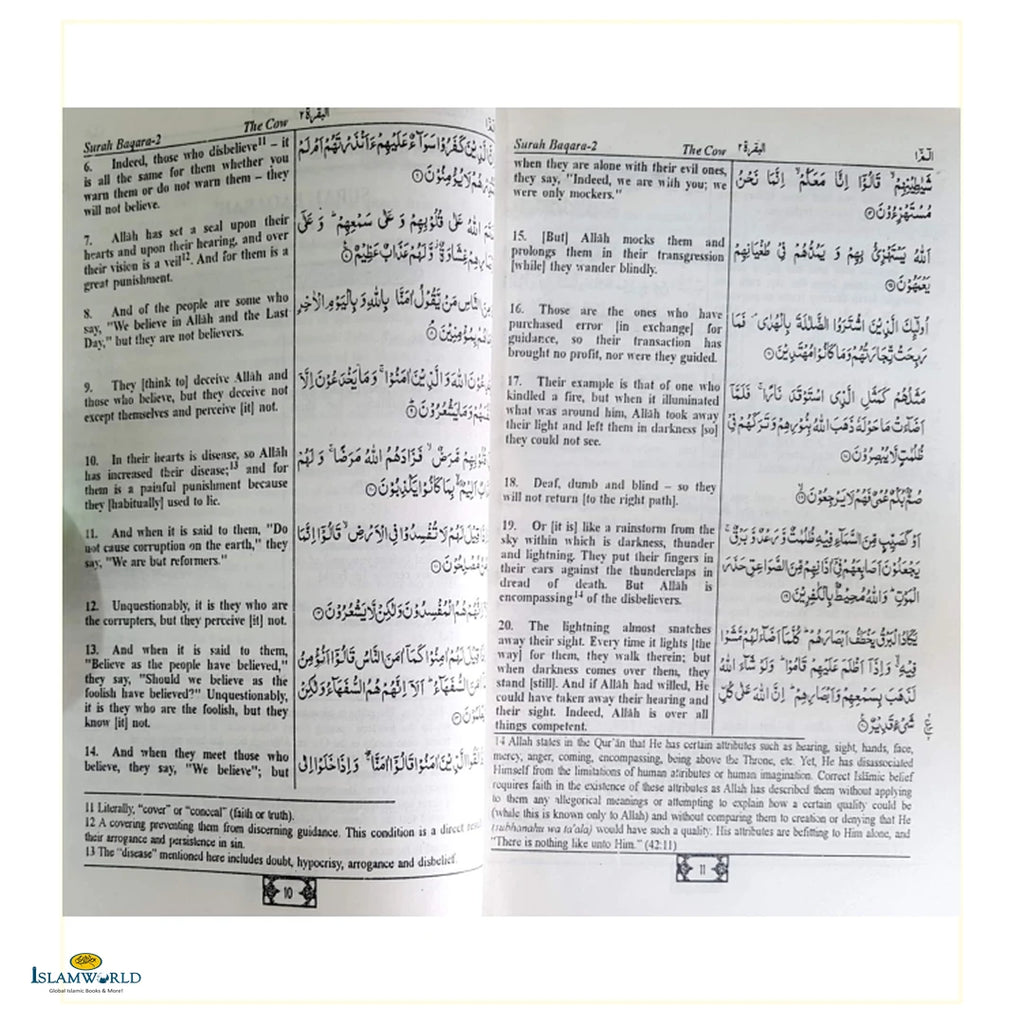 Surah Baqara-2
The Cow
البقرة ٢
6. Indeed, those who disbelieve¹¹ – it
is all the same for them whether you
warn them or do not warn them – they
will not believe.
7. Allāh has set a seal upon their
hearts and upon their hearing, and over
their vision is a veil¹². And for them is a
great punishment.
8. And of the people are some who
say, "We believe in Allāh and the Last
Day," but they are not believers.
9. They [think to] deceive Allāh and
those who believe, but they deceive not
except themselves and perceive [it] not.
10. In their hearts is disease, so Allāh
has increased their disease;¹³ and for
them is a painful punishment because
they [habitually] used to lie.
11. And when it is said to them, "Do
not cause corruption on the earth," they
say, "We are but reformers."
12. Unquestionably, it is they who are
the corrupters, but they perceive [it] not.
13. And when it is said to them,
"Believe as the people have believed,"
they say, "Should we believe as the
foolish have believed?" Unquestionably,
it is they who are the foolish, but they
know [it] not.
14. And when they meet those who
believe, they say, "We believe"; but
كَفَرُوْا سَوَآءٌ عَلَيْهِمْ ءَاَنْذَرْتَهُمْ اَمْ لَمْ
لَا يُؤْمِنُوْنَ ۝
اللّٰهُ عَلٰى قُلُوْبِهِمْ وَ عَلٰى سَمْعِهِمْ ؕ وَ عَلٰٓى
غِشَاوَةٌ ؗ وَّ لَهُمْ عَذَابٌ عَظِيْمٌ ۝
النَّاسِ مَنْ يَّقُوْلُ اٰمَنَّا بِاللّٰهِ وَ بِالْيَوْمِ الْاٰخِرِ
بِمُؤْمِنِيْنَ ۘ۝
اللّٰهَ وَ الَّذِيْنَ اٰمَنُوْا ۚ وَ مَا يَخْدَعُوْنَ اِلَّاۤ
وَ مَا يَشْعُرُوْنَ ۝
مَّرَضٌ ۙ فَزَادَهُمُ اللّٰهُ مَرَضًا ۚ وَ لَهُمْ
اَلِيْمٌۢ ۙ بِمَا كَانُوْا يَكْذِبُوْنَ ۝
قِيْلَ لَهُمْ لَا تُفْسِدُوْا فِي الْاَرْضِ ۙ قَالُوْۤا اِنَّمَا
مُصْلِحُوْنَ ۝
هُمُ الْمُفْسِدُوْنَ وَ لٰكِنْ لَّا يَشْعُرُوْنَ ۝
قِيْلَ لَهُمْ اٰمِنُوْا كَمَاۤ اٰمَنَ النَّاسُ قَالُوْۤا اَنُؤْمِنُ
اٰمَنَ السُّفَهَآءُ ؕ اَلَاۤ اِنَّهُمْ هُمُ السُّفَهَآءُ وَ لٰكِنْ
يَعْلَمُوْنَ ۝
الَّذِيْنَ اٰمَنُوْا قَالُوْۤا اٰمَنَّا ۖۚ وَ اِذَا خَلَوْا اِلٰى
11 Literally, "cover" or "conceal" (faith or truth).
12 A covering preventing them from discerning guidance. This condition is a direct
their arrogance and persistence in sin.
13 The "disease" mentioned here includes doubt, hypocrisy, arrogance and disbelief.
10
Surah Baqara-2
The Cow
البقرة ٢
الٓمّٓ ١
when they are alone with their evil ones,
they say, "Indeed, we are with you; we
were only mockers."
15. [But] Allāh mocks them and
prolongs them in their transgression
[while] they wander blindly.
16. Those are the ones who have
purchased error [in exchange] for
guidance, so their transaction has
brought no profit, nor were they guided.
17. Their example is that of one who
kindled a fire, but when it illuminated
what was around him, Allāh took away
their light and left them in darkness [so]
they could not see.
18. Deaf, dumb and blind – so they
will not return [to the right path].
19. Or [it is] like a rainstorm from the
sky within which is darkness, thunder
and lightning. They put their fingers in
their ears against the thunderclaps in
dread of death. But Allāh is
encompassing¹⁴ of the disbelievers.
20. The lightning almost snatches
away their sight. Every time it lights [the
way] for them, they walk therein; but
when darkness comes over them, they
stand [still]. And if Allāh had willed, He
could have taken away their hearing and
their sight. Indeed, Allāh is over all
things competent.
شَيٰطِيْنِهِمْ ۙ قَالُوْۤا اِنَّا مَعَكُمْ ۙ اِنَّمَا نَحْنُ
مُسْتَهْزِءُوْنَ ۝
اَللّٰهُ يَسْتَهْزِئُ بِهِمْ وَ يَمُدُّهُمْ فِيْ طُغْيَانِهِمْ
يَعْمَهُوْنَ ۝
اُولٰٓئِكَ الَّذِيْنَ اشْتَرَوُا الضَّلٰلَةَ بِالْهُدٰى ۪ فَمَا
رَبِحَتْ تِّجَارَتُهُمْ وَ مَا كَانُوْا مُهْتَدِيْنَ ۝
مَثَلُهُمْ كَمَثَلِ الَّذِي اسْتَوْقَدَ نَارًا ۚ فَلَمَّاۤ
اَضَآءَتْ مَا حَوْلَهٗ ذَهَبَ اللّٰهُ بِنُوْرِهِمْ وَ تَرَكَهُمْ فِيْ
ظُلُمٰتٍ لَّا يُبْصِرُوْنَ ۝
صُمٌّۢ بُكْمٌ عُمْيٌ فَهُمْ لَا يَرْجِعُوْنَ ۙ۝
اَوْ كَصَيِّبٍ مِّنَ السَّمَآءِ فِيْهِ ظُلُمٰتٌ وَّ رَعْدٌ وَّ بَرْقٌ ۚ
يَجْعَلُوْنَ اَصَابِعَهُمْ فِيْۤ اٰذَانِهِمْ مِّنَ الصَّوَاعِقِ حَذَرَ
الْمَوْتِ ؕ وَ اللّٰهُ مُحِيْطٌۢ بِالْكٰفِرِيْنَ ۝
يَكَادُ الْبَرْقُ يَخْطَفُ اَبْصَارَهُمْ ؕ كُلَّمَاۤ اَضَآءَ لَهُمْ مَّشَوْا
فِيْهِ ۙ وَ اِذَاۤ اَظْلَمَ عَلَيْهِمْ قَامُوْا ؕ وَ لَوْ شَآءَ اللّٰهُ
لَذَهَبَ بِسَمْعِهِمْ وَ اَبْصَارِهِمْ ؕ اِنَّ اللّٰهَ عَلٰى كُلِّ
شَيْءٍ قَدِيْرٌ ۝
14 Allah states in the Qur'ān that He has certain attributes such as hearing, sight, hands, face,
mercy, anger, coming, encompassing, being above the Throne, etc. Yet, He has disassociated
Himself from the limitations of human attributes or human imagination. Correct Islāmic belief
requires faith in the existence of these attributes as Allah has described them without applying
to them any allegorical meanings or attempting to explain how a certain quality could be
(while this is known only to Allah) and without comparing them to creation or denying that He
(subhanahu wa ta'ala) would have such a quality. His attributes are befitting to Him alone, and
"There is nothing like unto Him." (42:11)
11
ISLAMWORLD
Global Islamic Books & More!